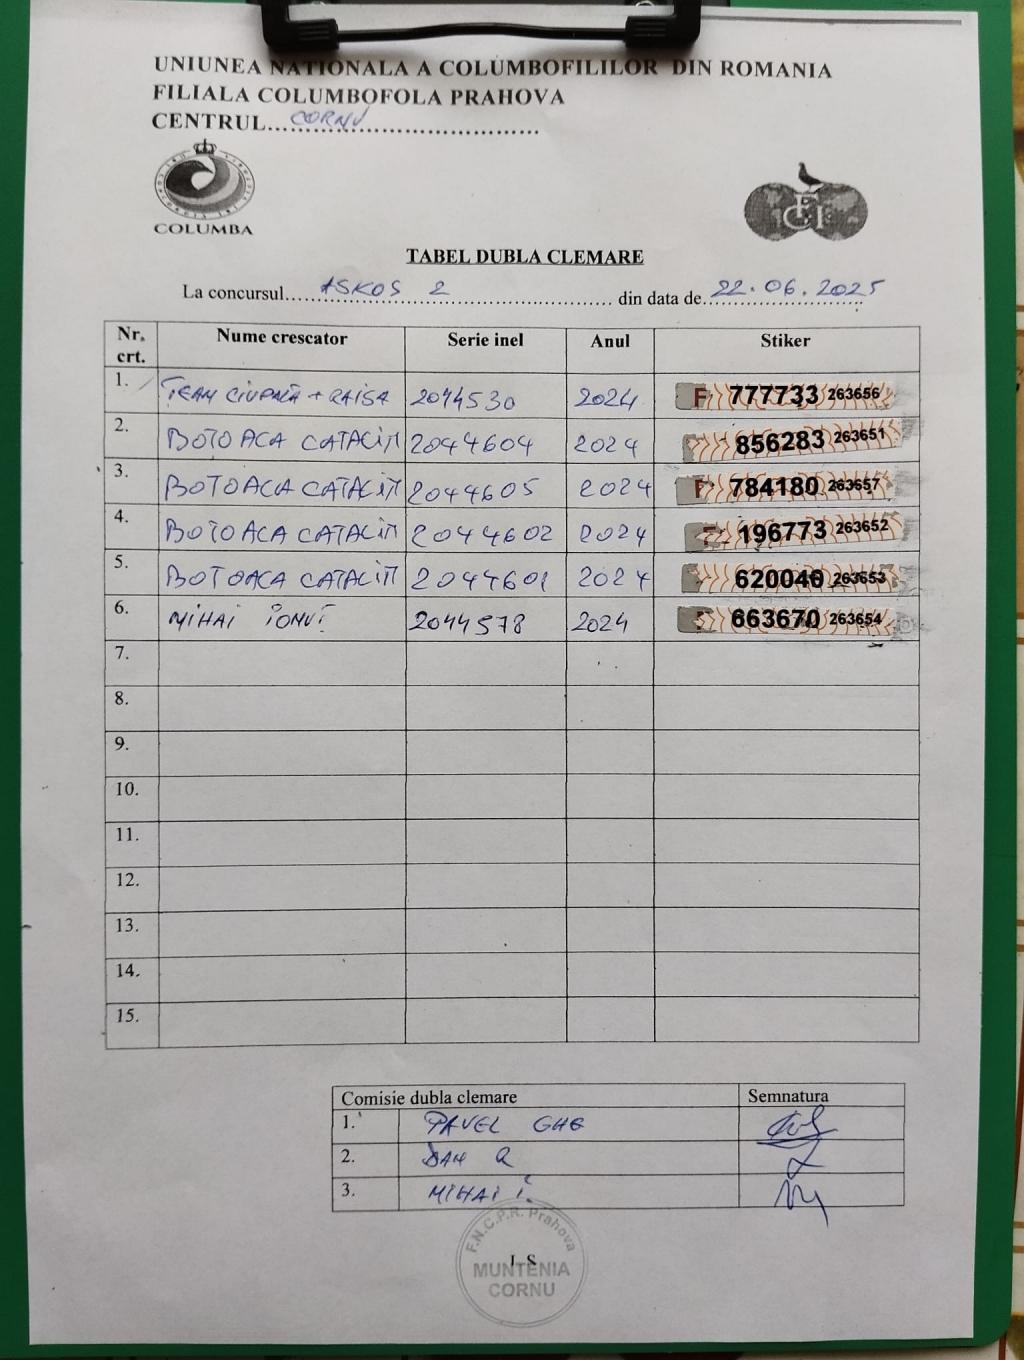 UNIUNEA NATIONALA A COLUMBOFILILOR DIN ROMANIA
FILIALA COLUMBOFOLA PRAHOVA
CENTRUL...CORNU...
COLUMBA
FCI
TABEL DUBLA CLEMARE
La concursul...ASKOS 2... din data de...22.06.2025
Nr. crt. Nume crescator Serie inel Anul Stiker
1. TEAM CIUPALĂ + RAISA 2044530 2024 F 777733 263656
2. BOTOACA CATALIN 2044604 2024 856283 263651
3. BOTOACA CATALIN 2044605 2024 F 784180 263657
4. BOTOACA CATALIN 2044602 2024 196773 263652
5. BOTOACA CATALIN 2044601 2024 620046 263653
6. MIHAI IONUȚ 2044578 2024 663670 263654
7.
8.
9.
10.
11.
12.
13.
14.
15.
Comisie dubla clemare Semnatura
1. PAVEL GHE
2. DAN R
3. MIHAI I.
F.N.C.P.R. Prahova
L S
MUNTENIA
CORNU